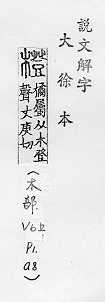 說文解字
大徐本
橙
橘屬从木登
聲丈庚切
(木部.
V6上
P1.
a8)